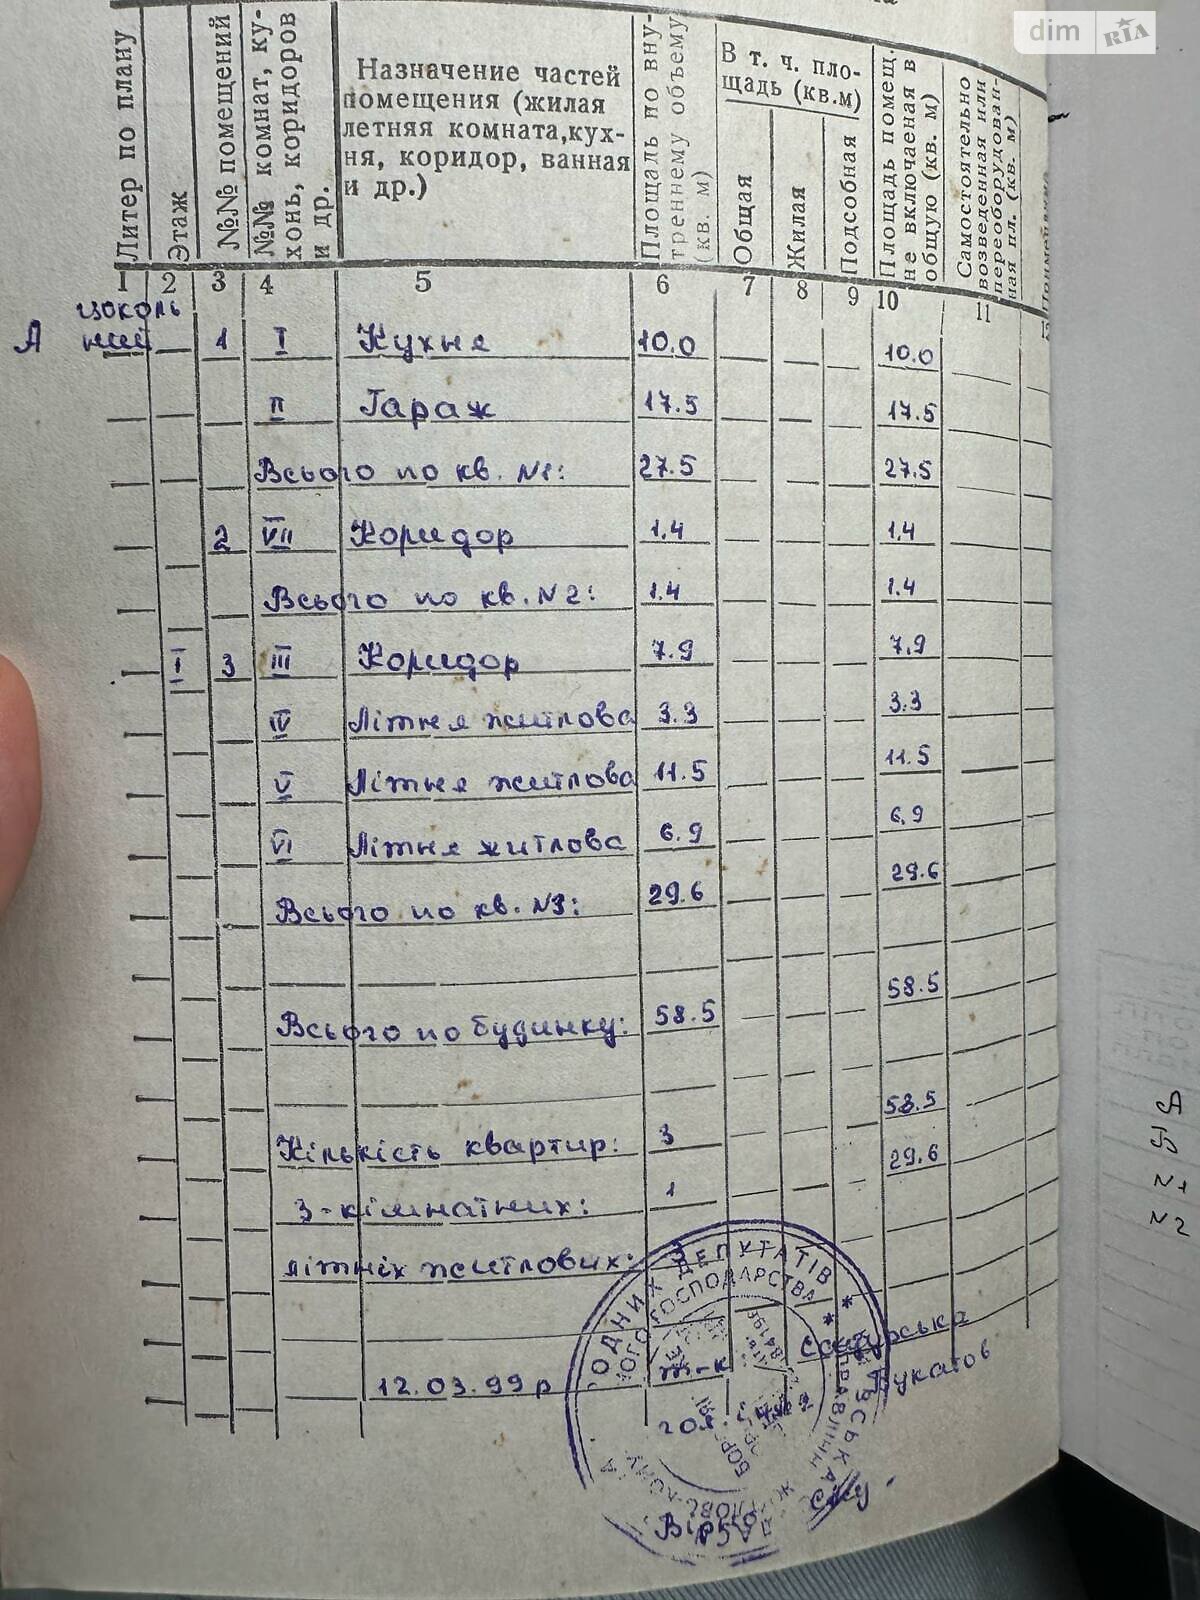 dim RIA
Литер по плану
Этаж
№№ помещений
№№ комнат, ку-
хонь, коридоров
и др.
Назначение частей
помещения (жилая
летняя комната,кух-
ня, коридор, ванная
и др.)
Площадь по вну-
треннему объему
(кв. м)
В т. ч. пло-
щадь (кв.м)
Общая
Жилая
Подсобная
Площадь помещ.
не включаеная в
общую (кв. м)
Самостоятельно
возведенная или
переоборудован-
ная пл. (кв. м)
1 2 3 4 5 6 7 8 9 10 11 12
А цоколь
ний 1 I Кухня 10.0 10.0
II Гараж 17.5 17.5
Всього по кв. N1: 27.5 27.5
2 VII Коридор 1.4 1.4
Всього по кв. N2: 1.4 1.4
I 3 III Коридор 7.9 7.9
IV Літня житлова 3.3 3.3
V Літня житлова 11.5 11.5
VI Літня житлова 6.9 6.9
Всього по кв. N3: 29.6 29.6
Всього по будинку: 58.5 58.5
58.5
Кількість квартир: 3 29.6
3-кімнатних: 1
літніх житлових: 3
12.03.99р т-к
ДЕПУТАТІВ
ГОСПОДАРСТВА
N1
N2